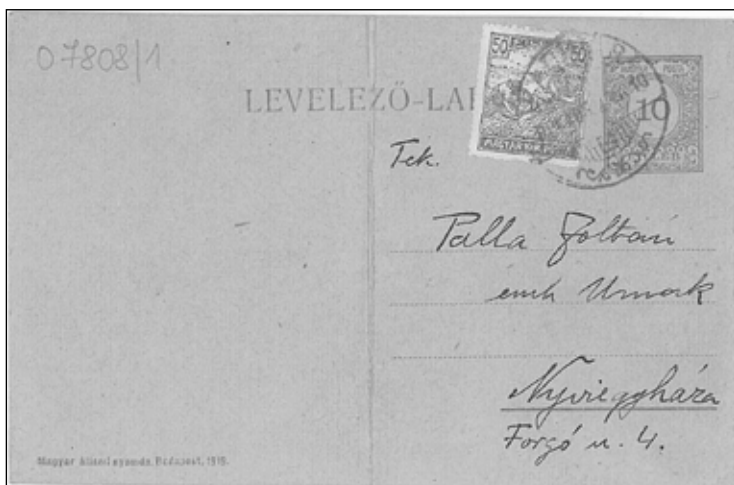 07808/1
LEVELEZŐ-LAP
50 50
MAGYAR KIR. POSTA
10
Tek.
Palla Zoltán
Urnak
Nyiregyháza
Forgó u. 4.
Magyar állami nyomda, Budapest, 1919.